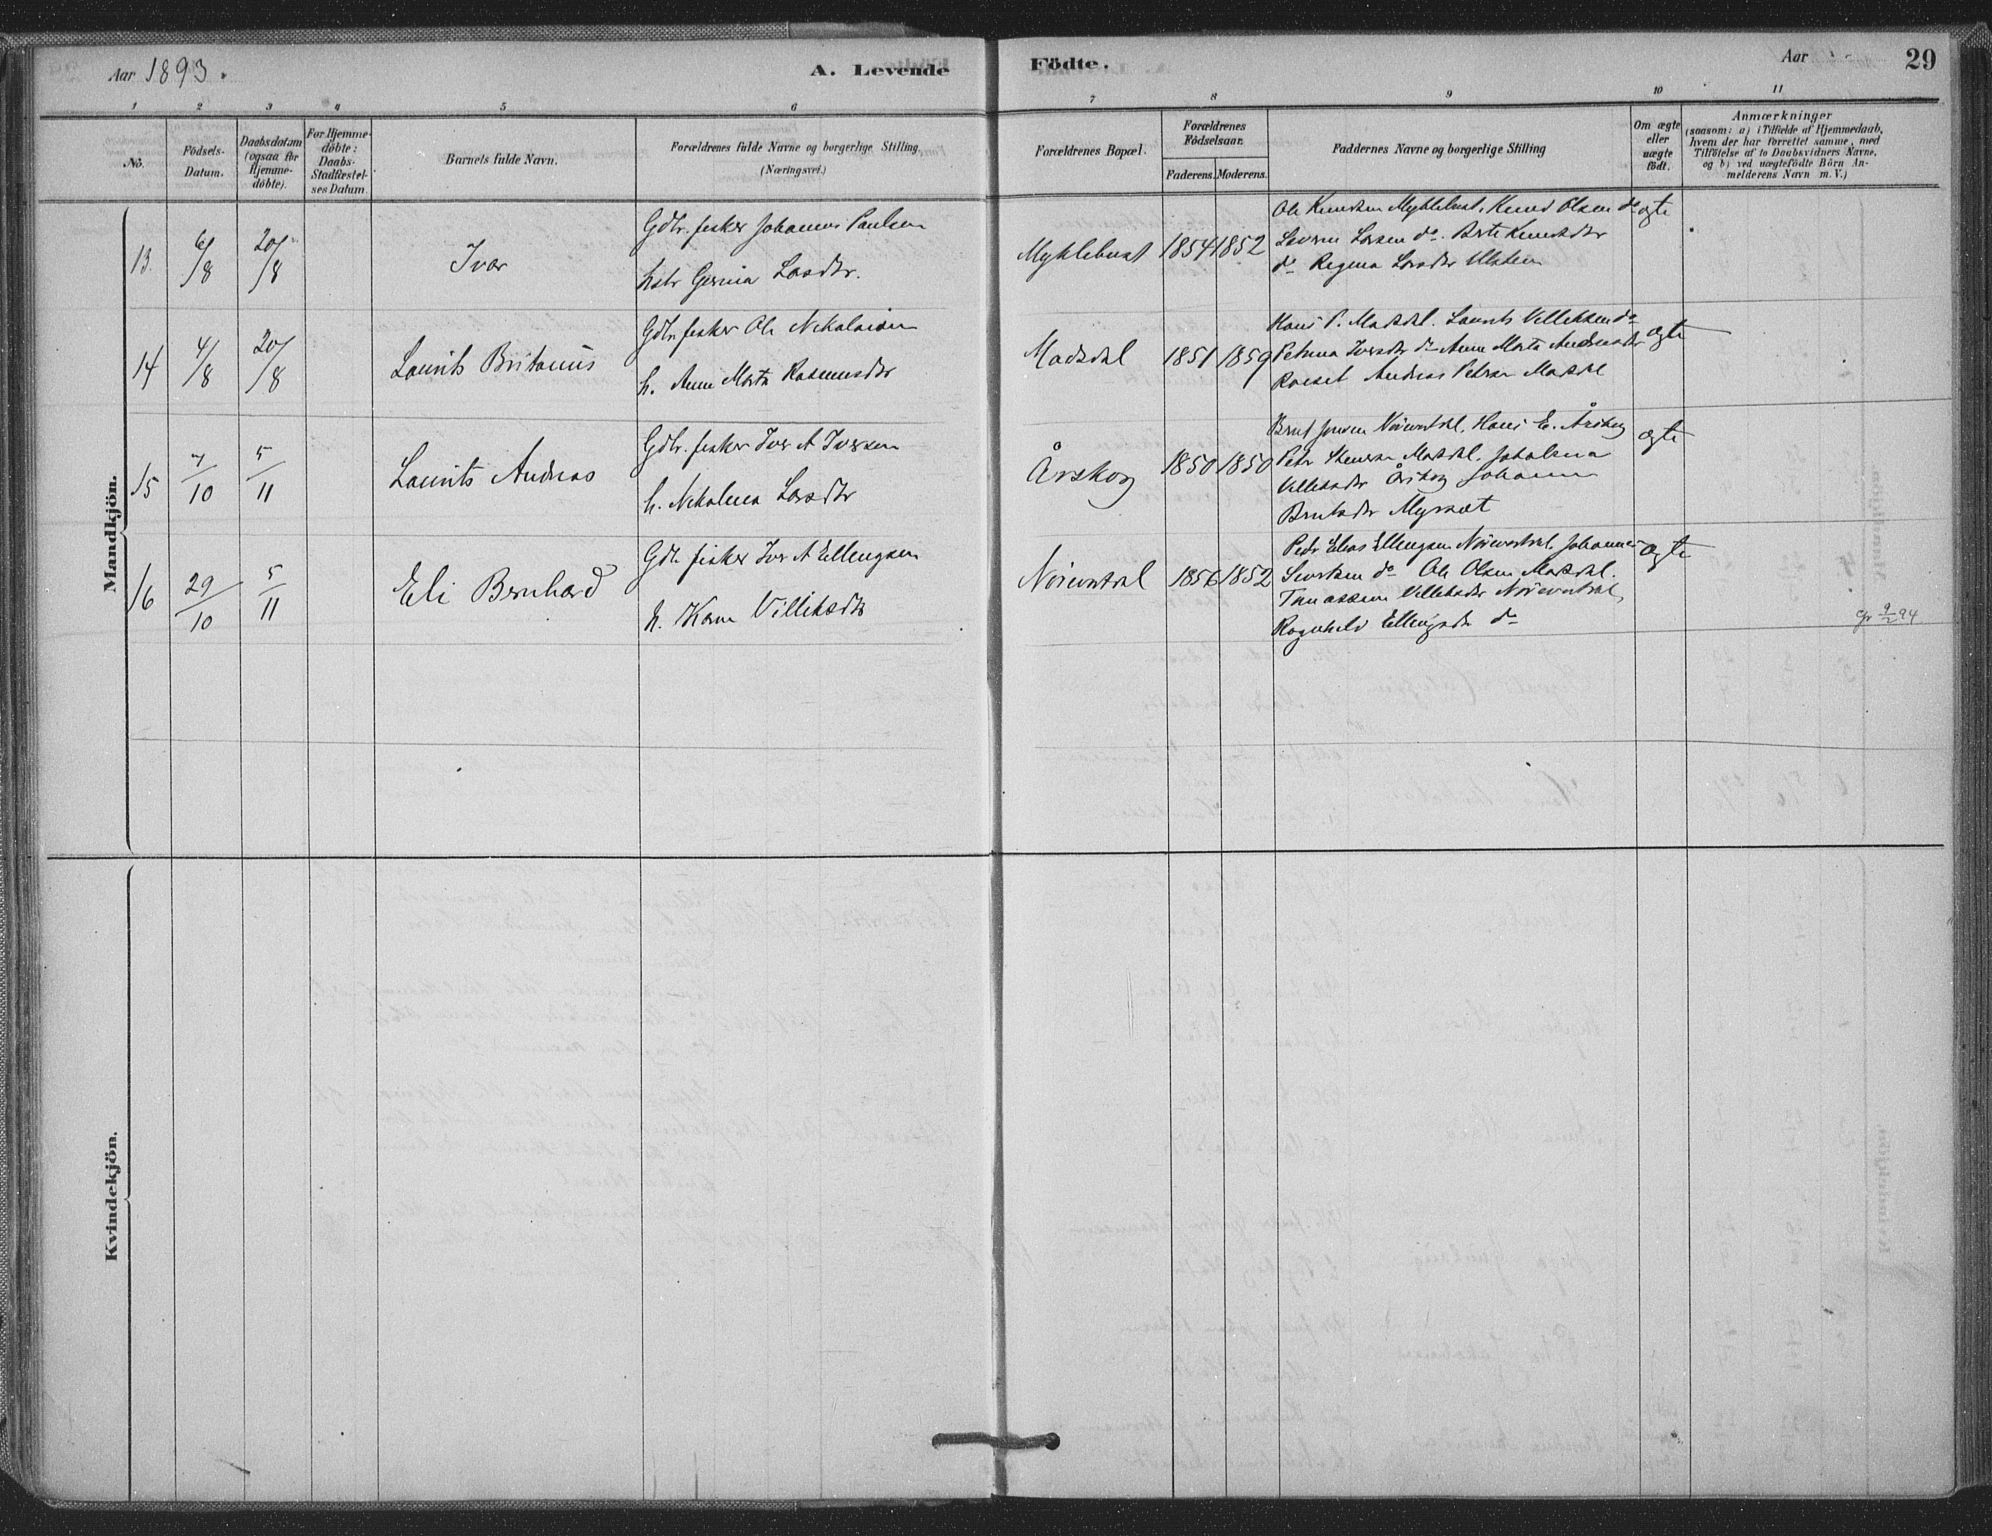 Aar 1893.
A. Levende
Födte.
Aar
29
1 2 3 4 5 6 7 8 9 10 11
No.
Födsels-
Datum.
Daabsdatum
(ogsaa for
Hjemme-
döbte).
For Hjemme-
döbte:
Daabs-
Stadfæstel-
ses Datum.
Barnets fulde Navn.
Forældrenes fulde Navne og borgerlige Stilling
(Næringsvei.)
Forældrenes Bopæl.
Forældrenes
Födselsaar.
Faderens. Moderens.
Faddernes Navne og borgerlige Stilling
Om ægte
eller
uægte
födt.
Anmærkninger
(saasom: a) i Tilfælde af Hjemmedaab,
hvem der har forrettet samme, med
Tilföielse af to Daabsvidners Navne,
og b) ved uægtefödte Börn An-
melderens Navn m. V.)
Mandkjön.
13 6/8 20/8 Ivar
Gdbr. fisker Johannes Paulsen
hstr Larsdtr.
Myklebust 1854 1852
Ole Knudsen Myklebust, Knud Olsen do
Larsen do Berte Knudsdtr
do Regina Larsdtr Ulstein
ægte
14 4/8 20/8 Laurits Britanus
Gdbr. fisker Ole Nikolaisen
h. Anne Marta Rasmusdtr
Madsdal 1851 1859
Hans P. Madsdal. Laurits Villiksen do
Petrina Iversdtr do Anne Marta Andreasdtr
Andreas Petersen Madsdal
ægte
15 7/10 5/11 Laurits Andreas
Gdbr. fisker Iver A Iversen
h. Nikolina Larsdtr
Årskog 1850 1850
Jensen Nörevatdal, Hans E. Årskog
Madsdal,
Årskog Johanne
Myrsæt
ægte
16 29/10 5/11 Eli Bernhard
Gdbr. fisker Iver A Ellingsen
h. Karen Villiksdtr
Nörevatdal 1856 1852
Peder Elias Ellingsen Nörevatdal, Johannes
Sivertsen do Ole Olsen Madsdal.
Villiksdtr Nörevatdal,
Ragnhild Ellingsdtr do
ægte
9/2 94
Kvindekjön.